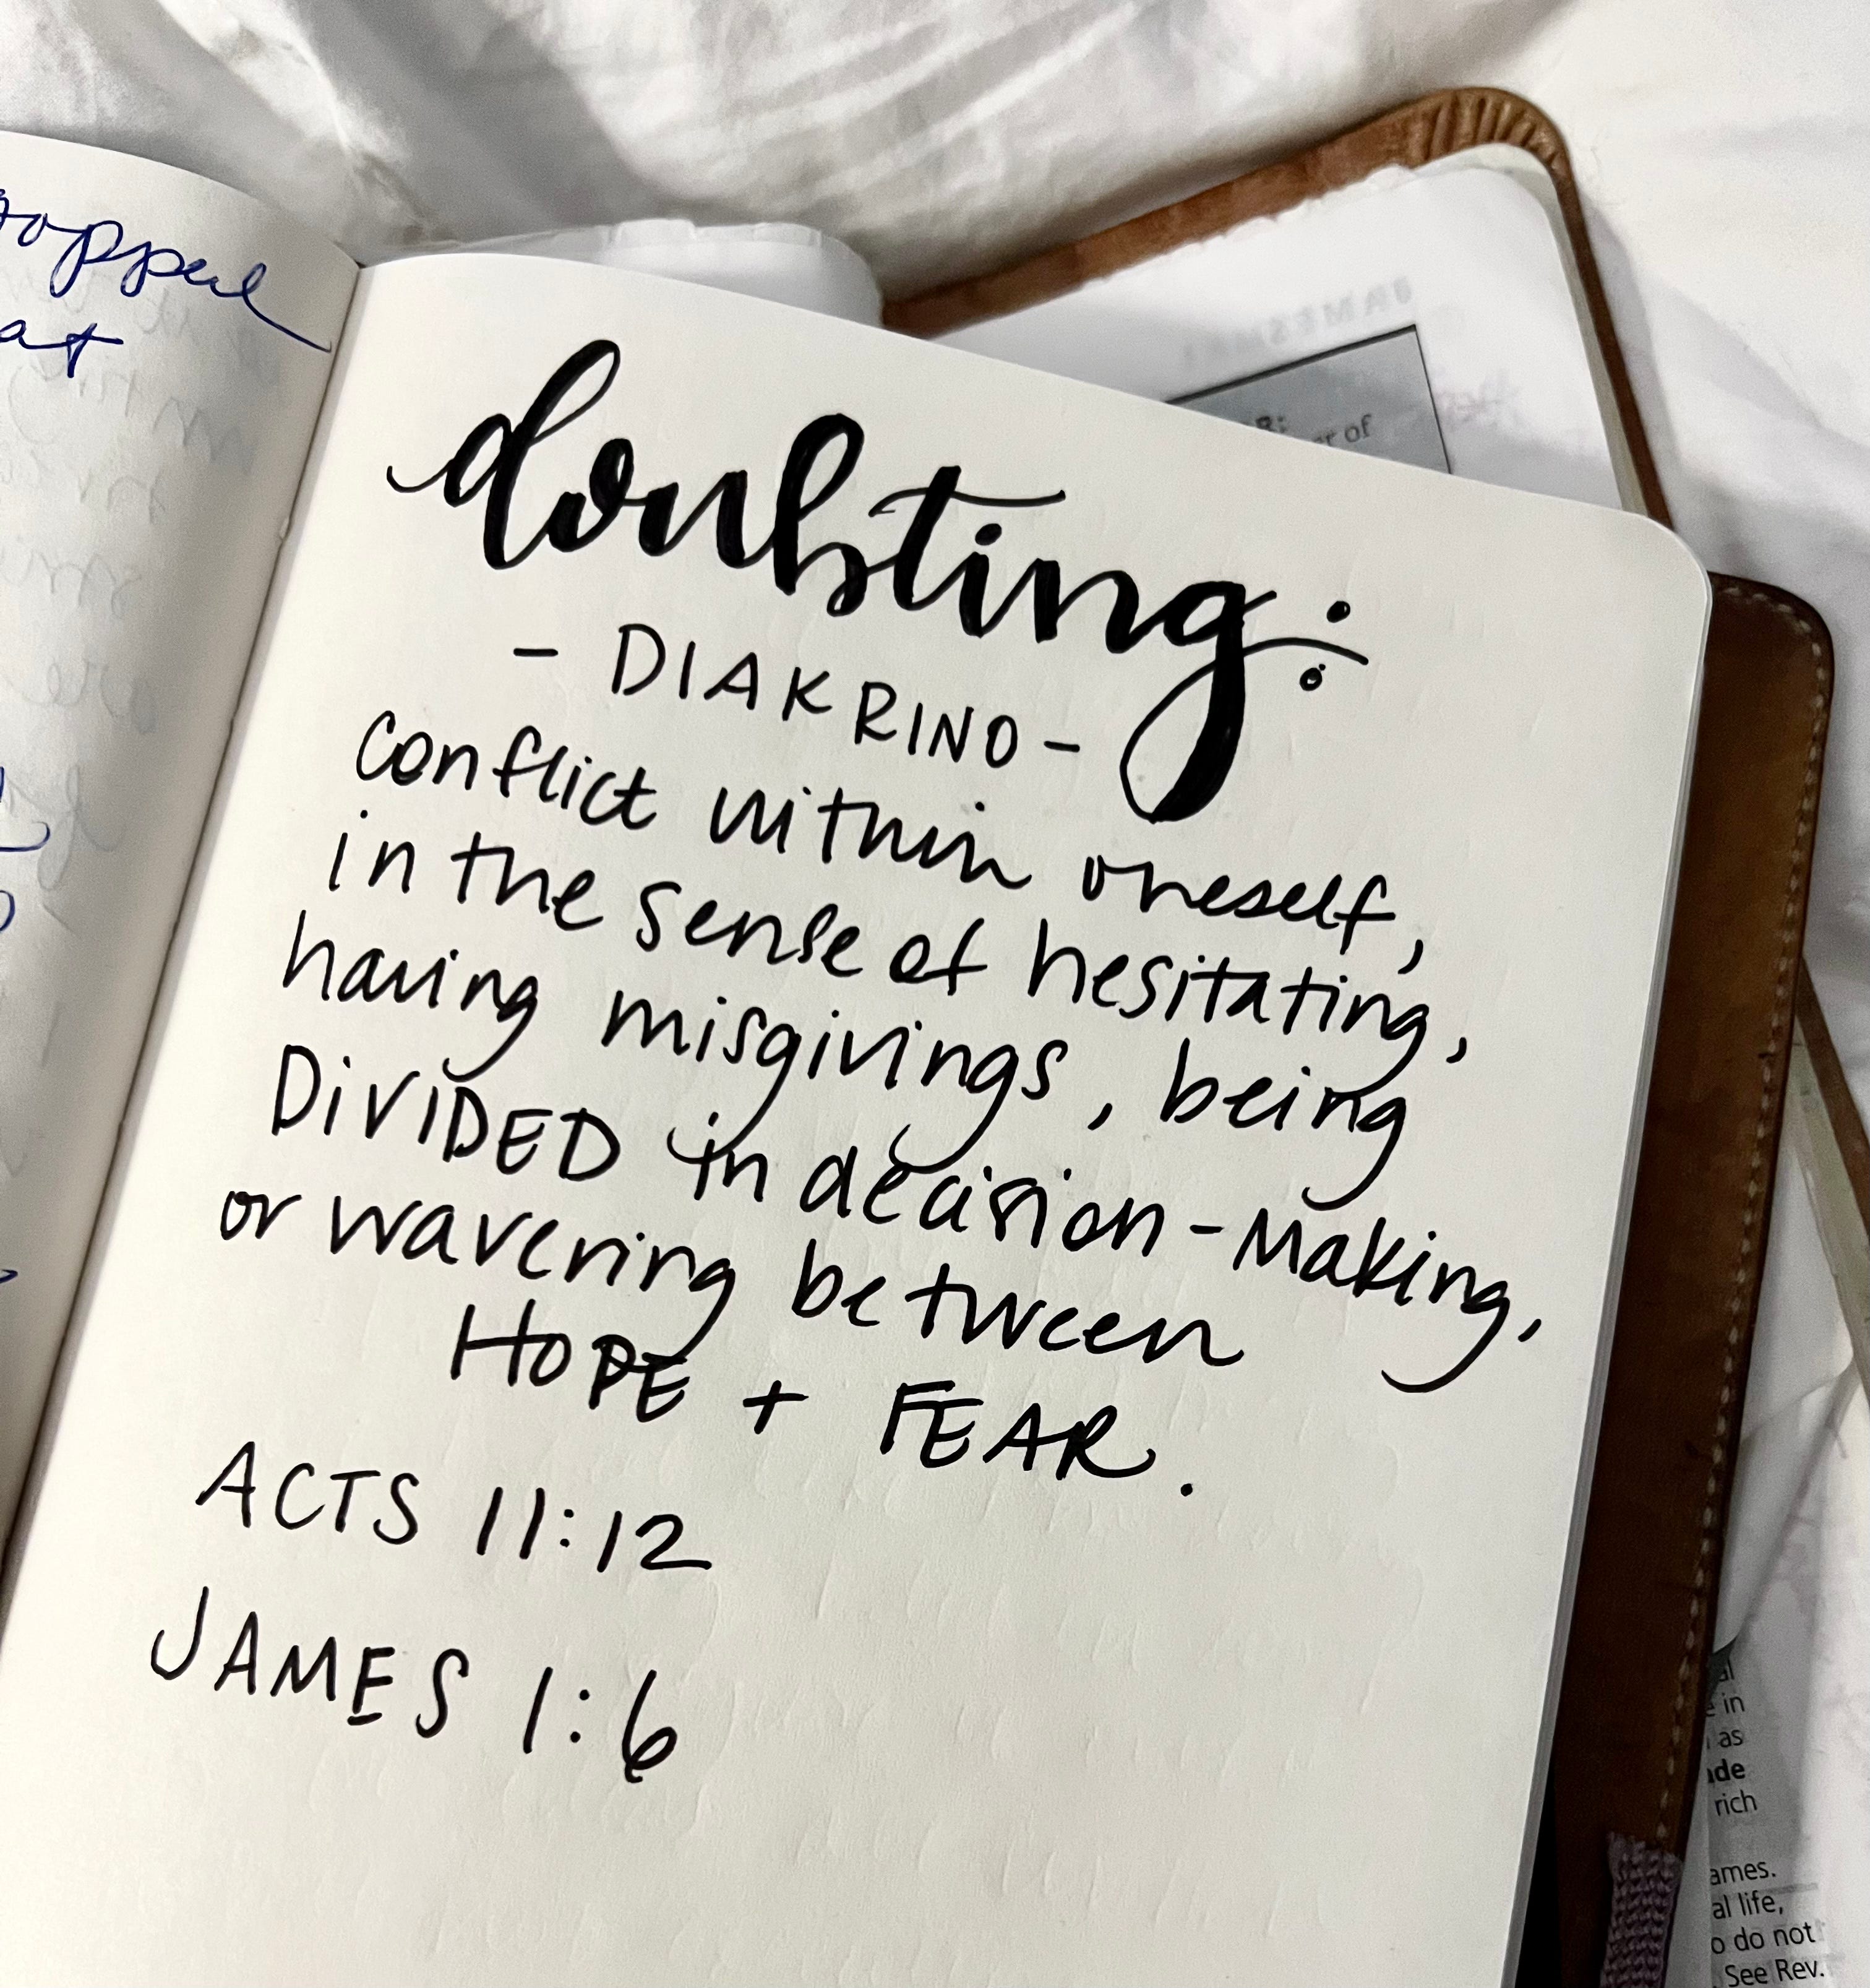 at
doubting:
- DIAKRINO -
conflict within oneself,
in the sense of hesitating,
having misgivings, being
DiViDED in decision-Making,
or wavering between
HOPE + FEAR.
ACTS 11:12
JAMES 1:6
of
in
as
rich
life,
do not
See Rev.